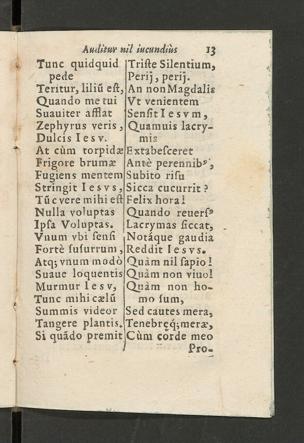 Auditur nil iucundiùs 13
Tunc quidquid
pede
Teritur, liliū est,
Quando me tui
Suauiter afflat
Zephyrus veris,
Dulcis Iesv.
At cùm torpidæ
Frigore brumæ
Fugiens mentem
Stringit Iesvs,
Tūc vere mihi est
Nulla voluptas
Ipsa Voluptas.
Vnum vbi sensi
Fortè susurrum,
Atq; vnum modò
Suaue loquentis
Murmur Iesv,
Tunc mihi cælū
Summis videor
Tangere plantis.
Si quādo premit
Triste Silentium,
Perij, perij.
An non Magdalis
Vt venientem
Sensit Iesvm,
Quamuis lacry-
mis
Extabesceret
Antè perennib⁹,
Subito risu
Sicca cucurrit?
Felix hora!
Quando reuers⁹
Lacrymas siccat,
Notáque gaudia
Reddit Iesvs.
Quàm nil sapio!
Quàm non viuo!
Quàm non ho-
mo sum,
Sed cautes mera,
Tenebręq́; meræ,
Cùm corde meo
Pro-